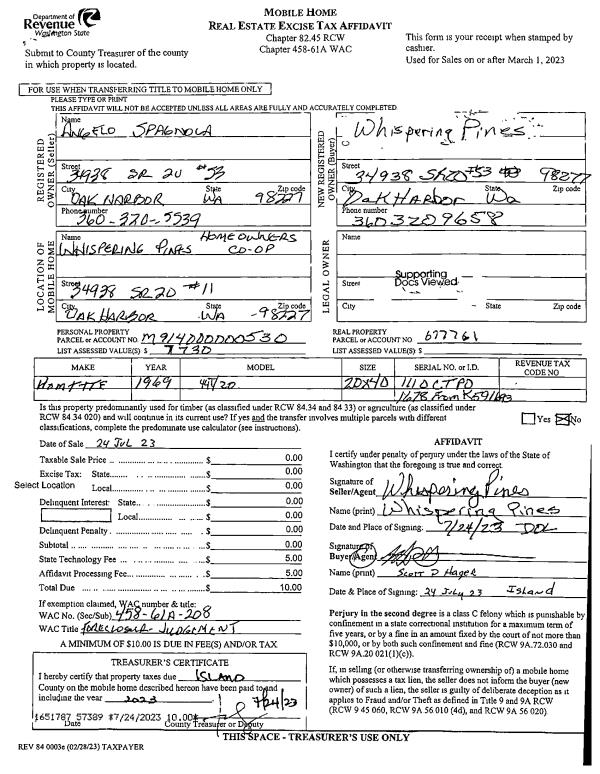 Department of
Revenue
Washington State
Submit to County Treasurer of the county
in which property is located.
MOBILE HOME
REAL ESTATE EXCISE TAX AFFIDAVIT
Chapter 82.45 RCW
Chapter 458-61A WAC
This form is your receipt when stamped by
cashier.
Used for Sales on or after March 1, 2023
FOR USE WHEN TRANSFERRING TITLE TO MOBILE HOME ONLY
PLEASE TYPE OR PRINT
THIS AFFIDAVIT WILL NOT BE ACCEPTED UNLESS ALL AREAS ARE FULLY AND ACCURATELY COMPLETED
REGISTERED OWNER (Seller)
Name
ANGELO SPAGNOLA
Street
34938 SR 20 #53
City State Zip code
OAK HARBOR WA 98277
Phone number
360-320-5539
NEW REGISTERED OWNER (Buyer)
Whispering Pines
Street
34938 SR20 #53 98277
City State Zip code
Oak Harbor Wa
Phone number
360 320 9658
LOCATION OF MOBILE HOME
Name
HOMEOWNERS
WHISPERING PINES CO-OP
Street
34938 SR 20 #11
City State Zip code
OAK HARBOR WA -98277
LEGAL OWNER
Name
Street
Supporting
Docs Viewed
City State Zip code
PERSONAL PROPERTY
PARCEL or ACCOUNT NO. M914000000530
LIST ASSESSED VALUE(S) $ 7730
REAL PROPERTY
PARCEL or ACCOUNT NO 677761
LIST ASSESSED VALUE(S) $
MAKE YEAR MODEL SIZE SERIAL NO. or I.D. REVENUE TAX CODE NO
1969 20X40
1678 From K591693
Is this property predominantly used for timber (as classified under RCW 84.34 and 84 33) or agriculture (as classified under
RCW 84 34 020) and will continue in its current use? If yes and the transfer involves multiple parcels with different
classifications, complete the predominate use calculator (see instructions).
Yes No
Date of Sale 24 JUL 23
Taxable Sale Price $ 0.00
Excise Tax: State $ 0.00
Select Location
Local $ 0.00
Delinquent Interest: State $ 0.00
Local $ 0.00
Delinquent Penalty $ 0.00
Subtotal $ 0.00
State Technology Fee $ 5.00
Affidavit Processing Fee $ 5.00
Total Due $ 10.00
If exemption claimed, WAC number & title:
WAC No. (Sec/Sub) 458-61A-208
WAC Title FORECLOSUR JUDGEMENT
A MINIMUM OF $10.00 IS DUE IN FEE(S) AND/OR TAX
AFFIDAVIT
I certify under penalty of perjury under the laws of the State of
Washington that the foregoing is true and correct
Signature of
Seller/Agent Whispering Pines
Name (print) Whispering Pines
Date and Place of Signing: 7/24/23
Signature of
Buyer/Agent
Name (print) Scott D Hager
Date & Place of Signing: 24 July 23 Island
Perjury in the second degree is a class C felony which is punishable by
confinement in a state correctional institution for a maximum term of
five years, or by a fine in an amount fixed by the court of not more than
$10,000, or by both such confinement and fine (RCW 9A.72.030 and
RCW 9A.20 021(1)(c)).
If, in selling (or otherwise transferring ownership of) a mobile home
which possesses a tax lien, the seller does not inform the buyer (new
owner) of such a lien, the seller is guilty of deliberate deception as it
applies to Fraud and/or Theft as defined in Title 9 and 9A RCW
(RCW 9 45 060, RCW 9A 56 010 (4d), and RCW 9A 56 020).
TREASURER'S CERTIFICATE
I hereby certify that property taxes due ISLAND
County on the mobile home described hereon have been paid to and
including the year 2023 7/24/23
651787 57389 7/24/2023 10.00
Date County Treasurer or Deputy
THIS SPACE - TREASURER'S USE ONLY
REV 84 0003e (02/28/23) TAXPAYER